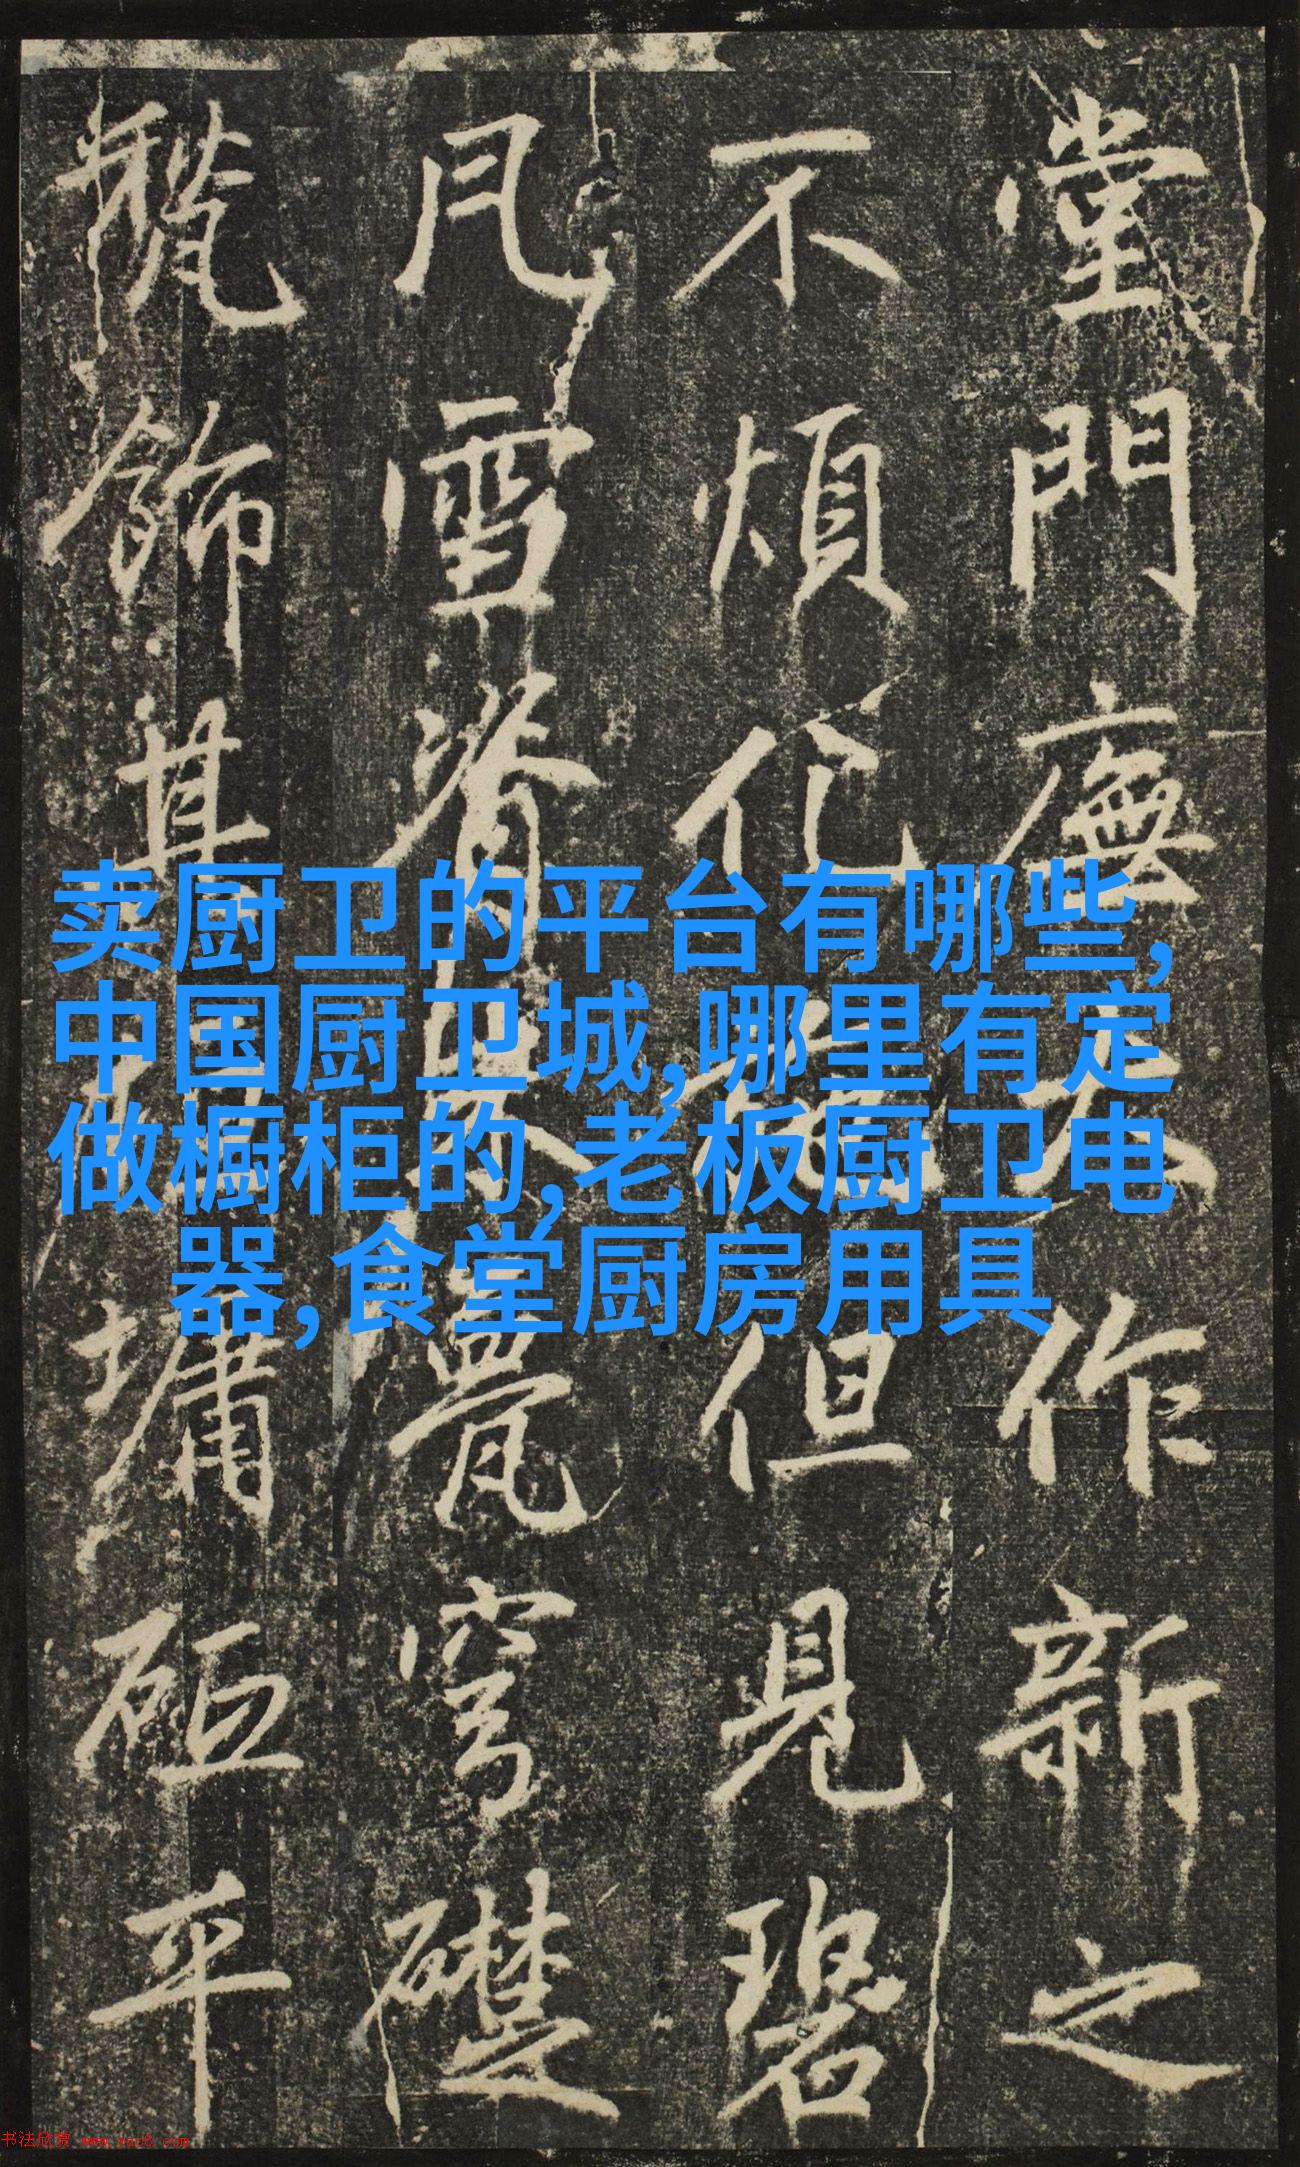 堂門廡大作新之
不煩化 但見碧
風雪脊 甍穹礎
甃飾其 墉砠平
卖厨卫的平台有哪些,
中国厨卫城,哪里有定
做橱柜的,老板厨卫电
器,食堂厨房用具
书法欣赏 www.yac8.com